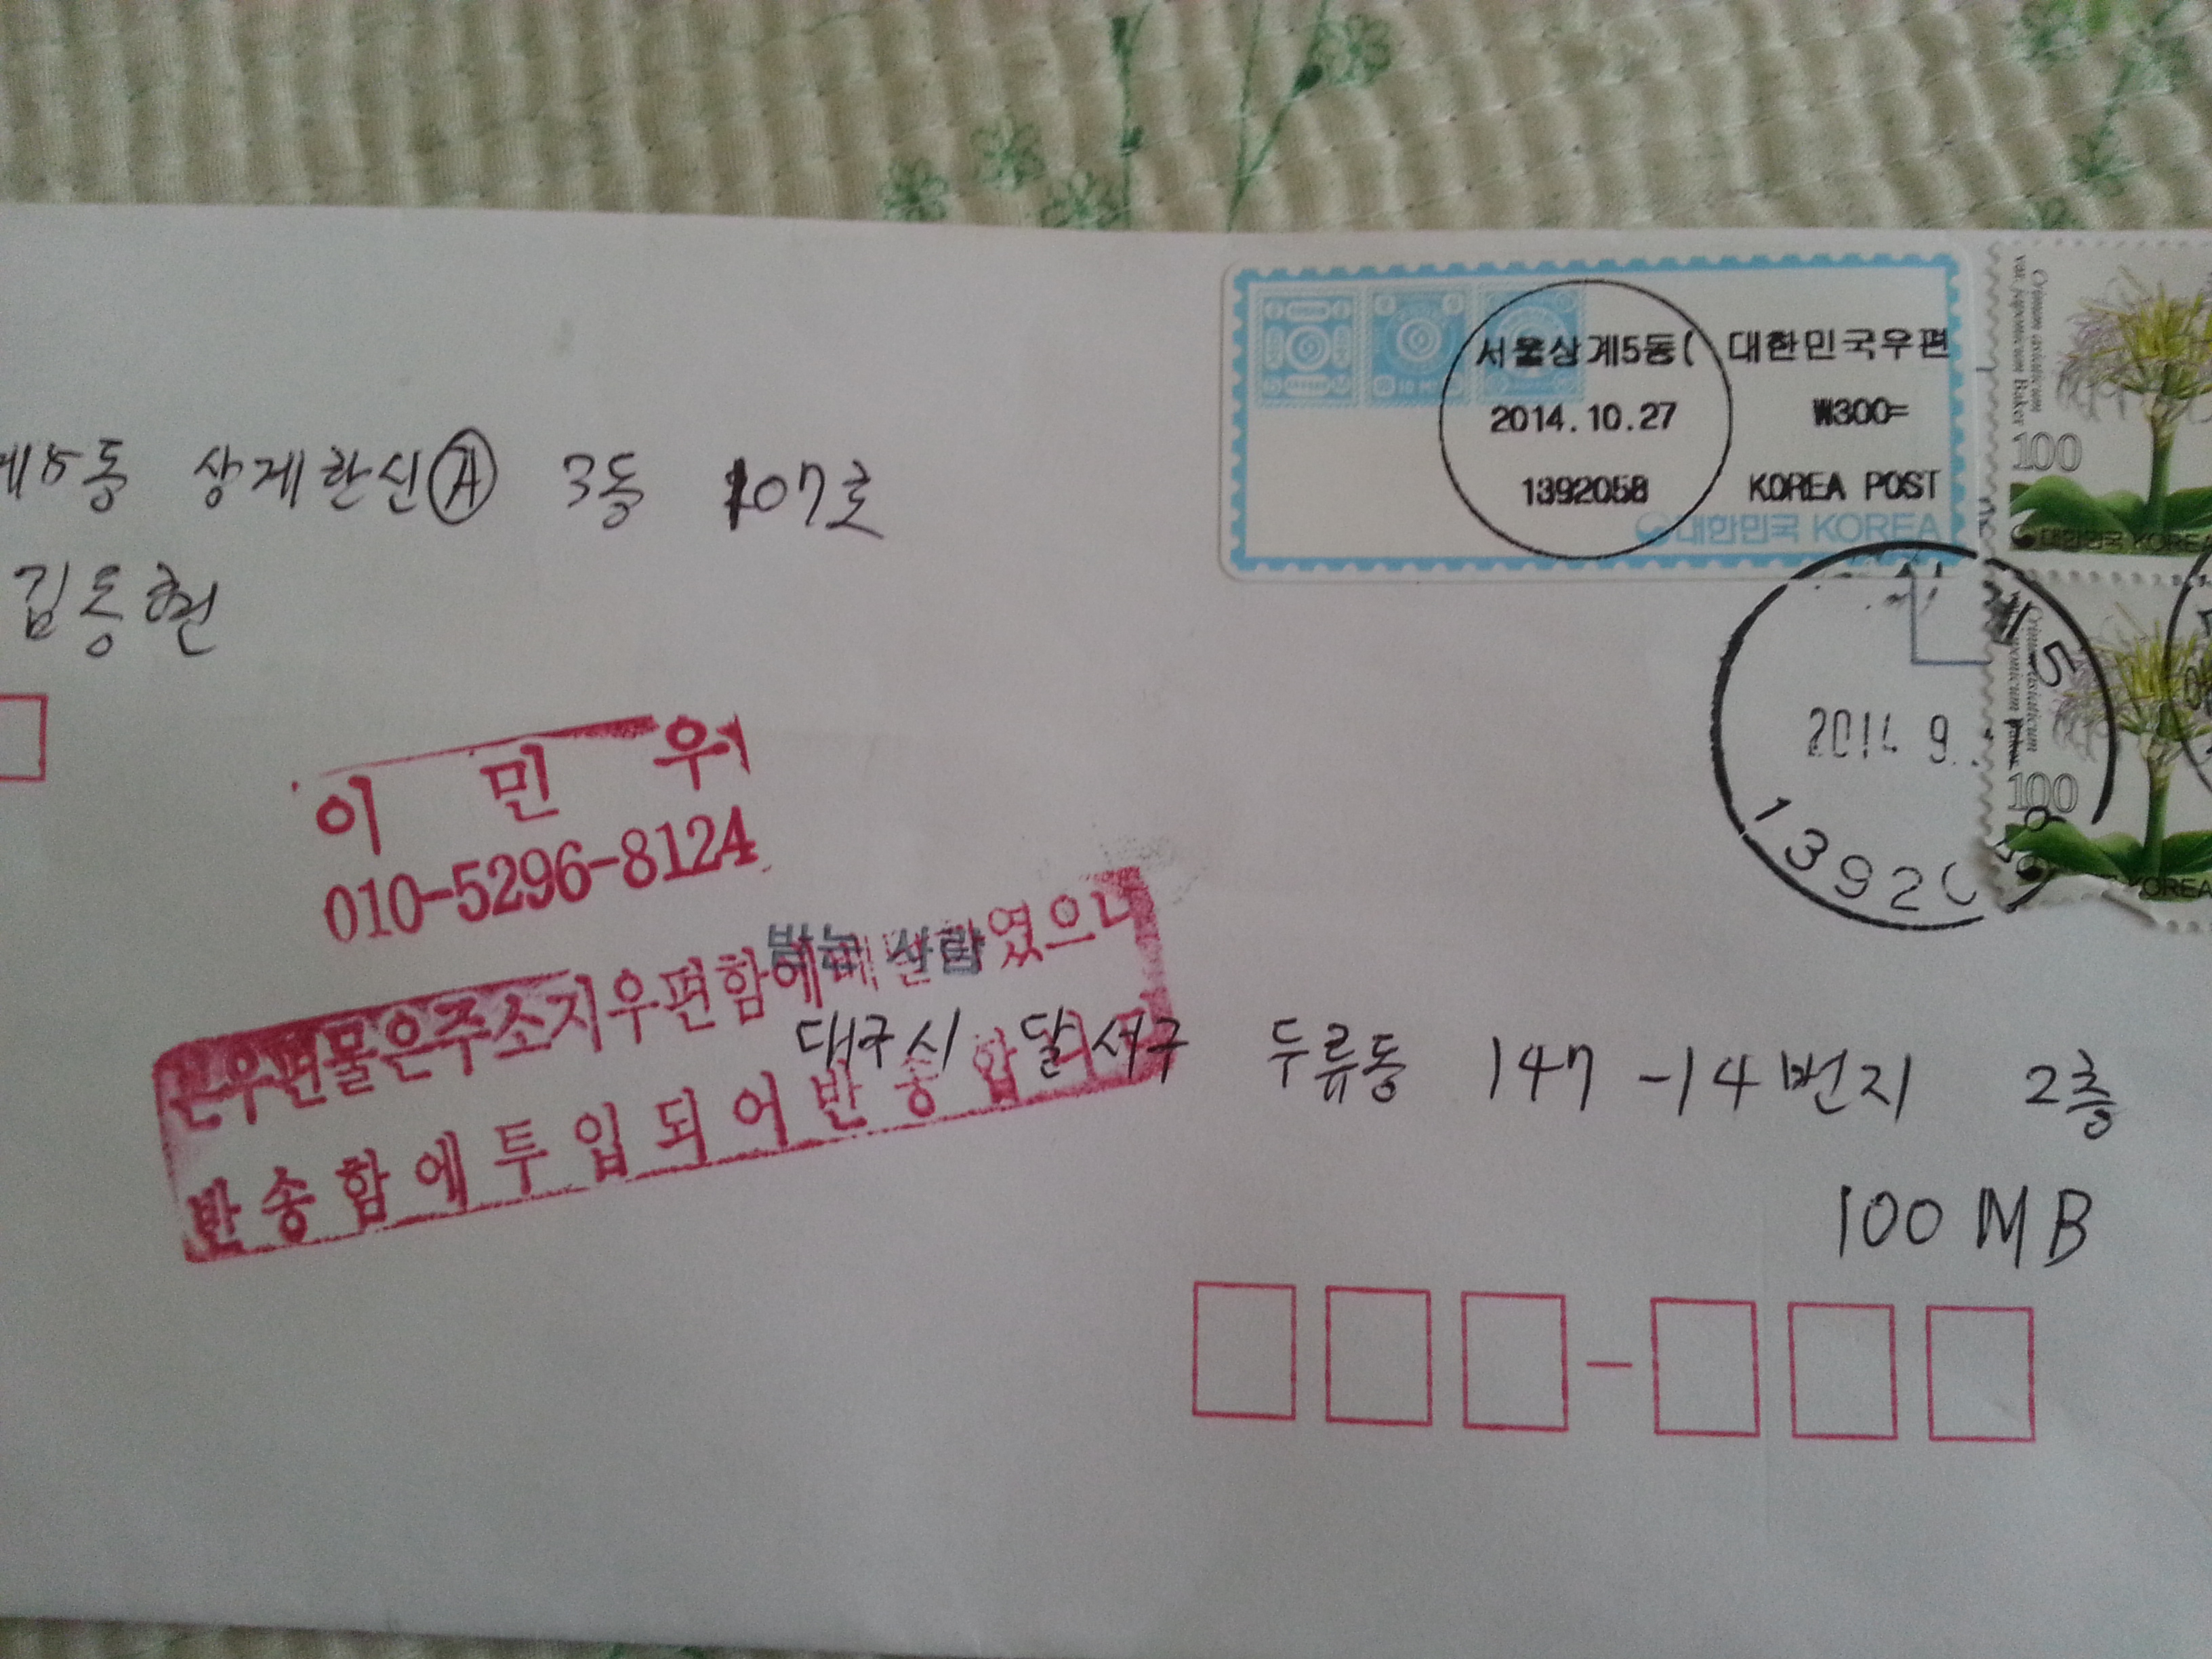 계5동 상계한신A 3동 107호
김동현
서울상계5동( 대한민국우편
2014.10.27 ₩300=
1392058 KOREA POST
대한민국 KOREA
Crinum asiaticum
var. japonicum Baker
100
대한민국 KOREA
Crinum asiaticum
100
KOREA
이 민 우
010-5296-8124
본우편물은주소지우편함에배달하였으나
반송함에투입되어반송합니다
받는 사람
대구시 달서구 두류동 147-14번지 2층
100 MB